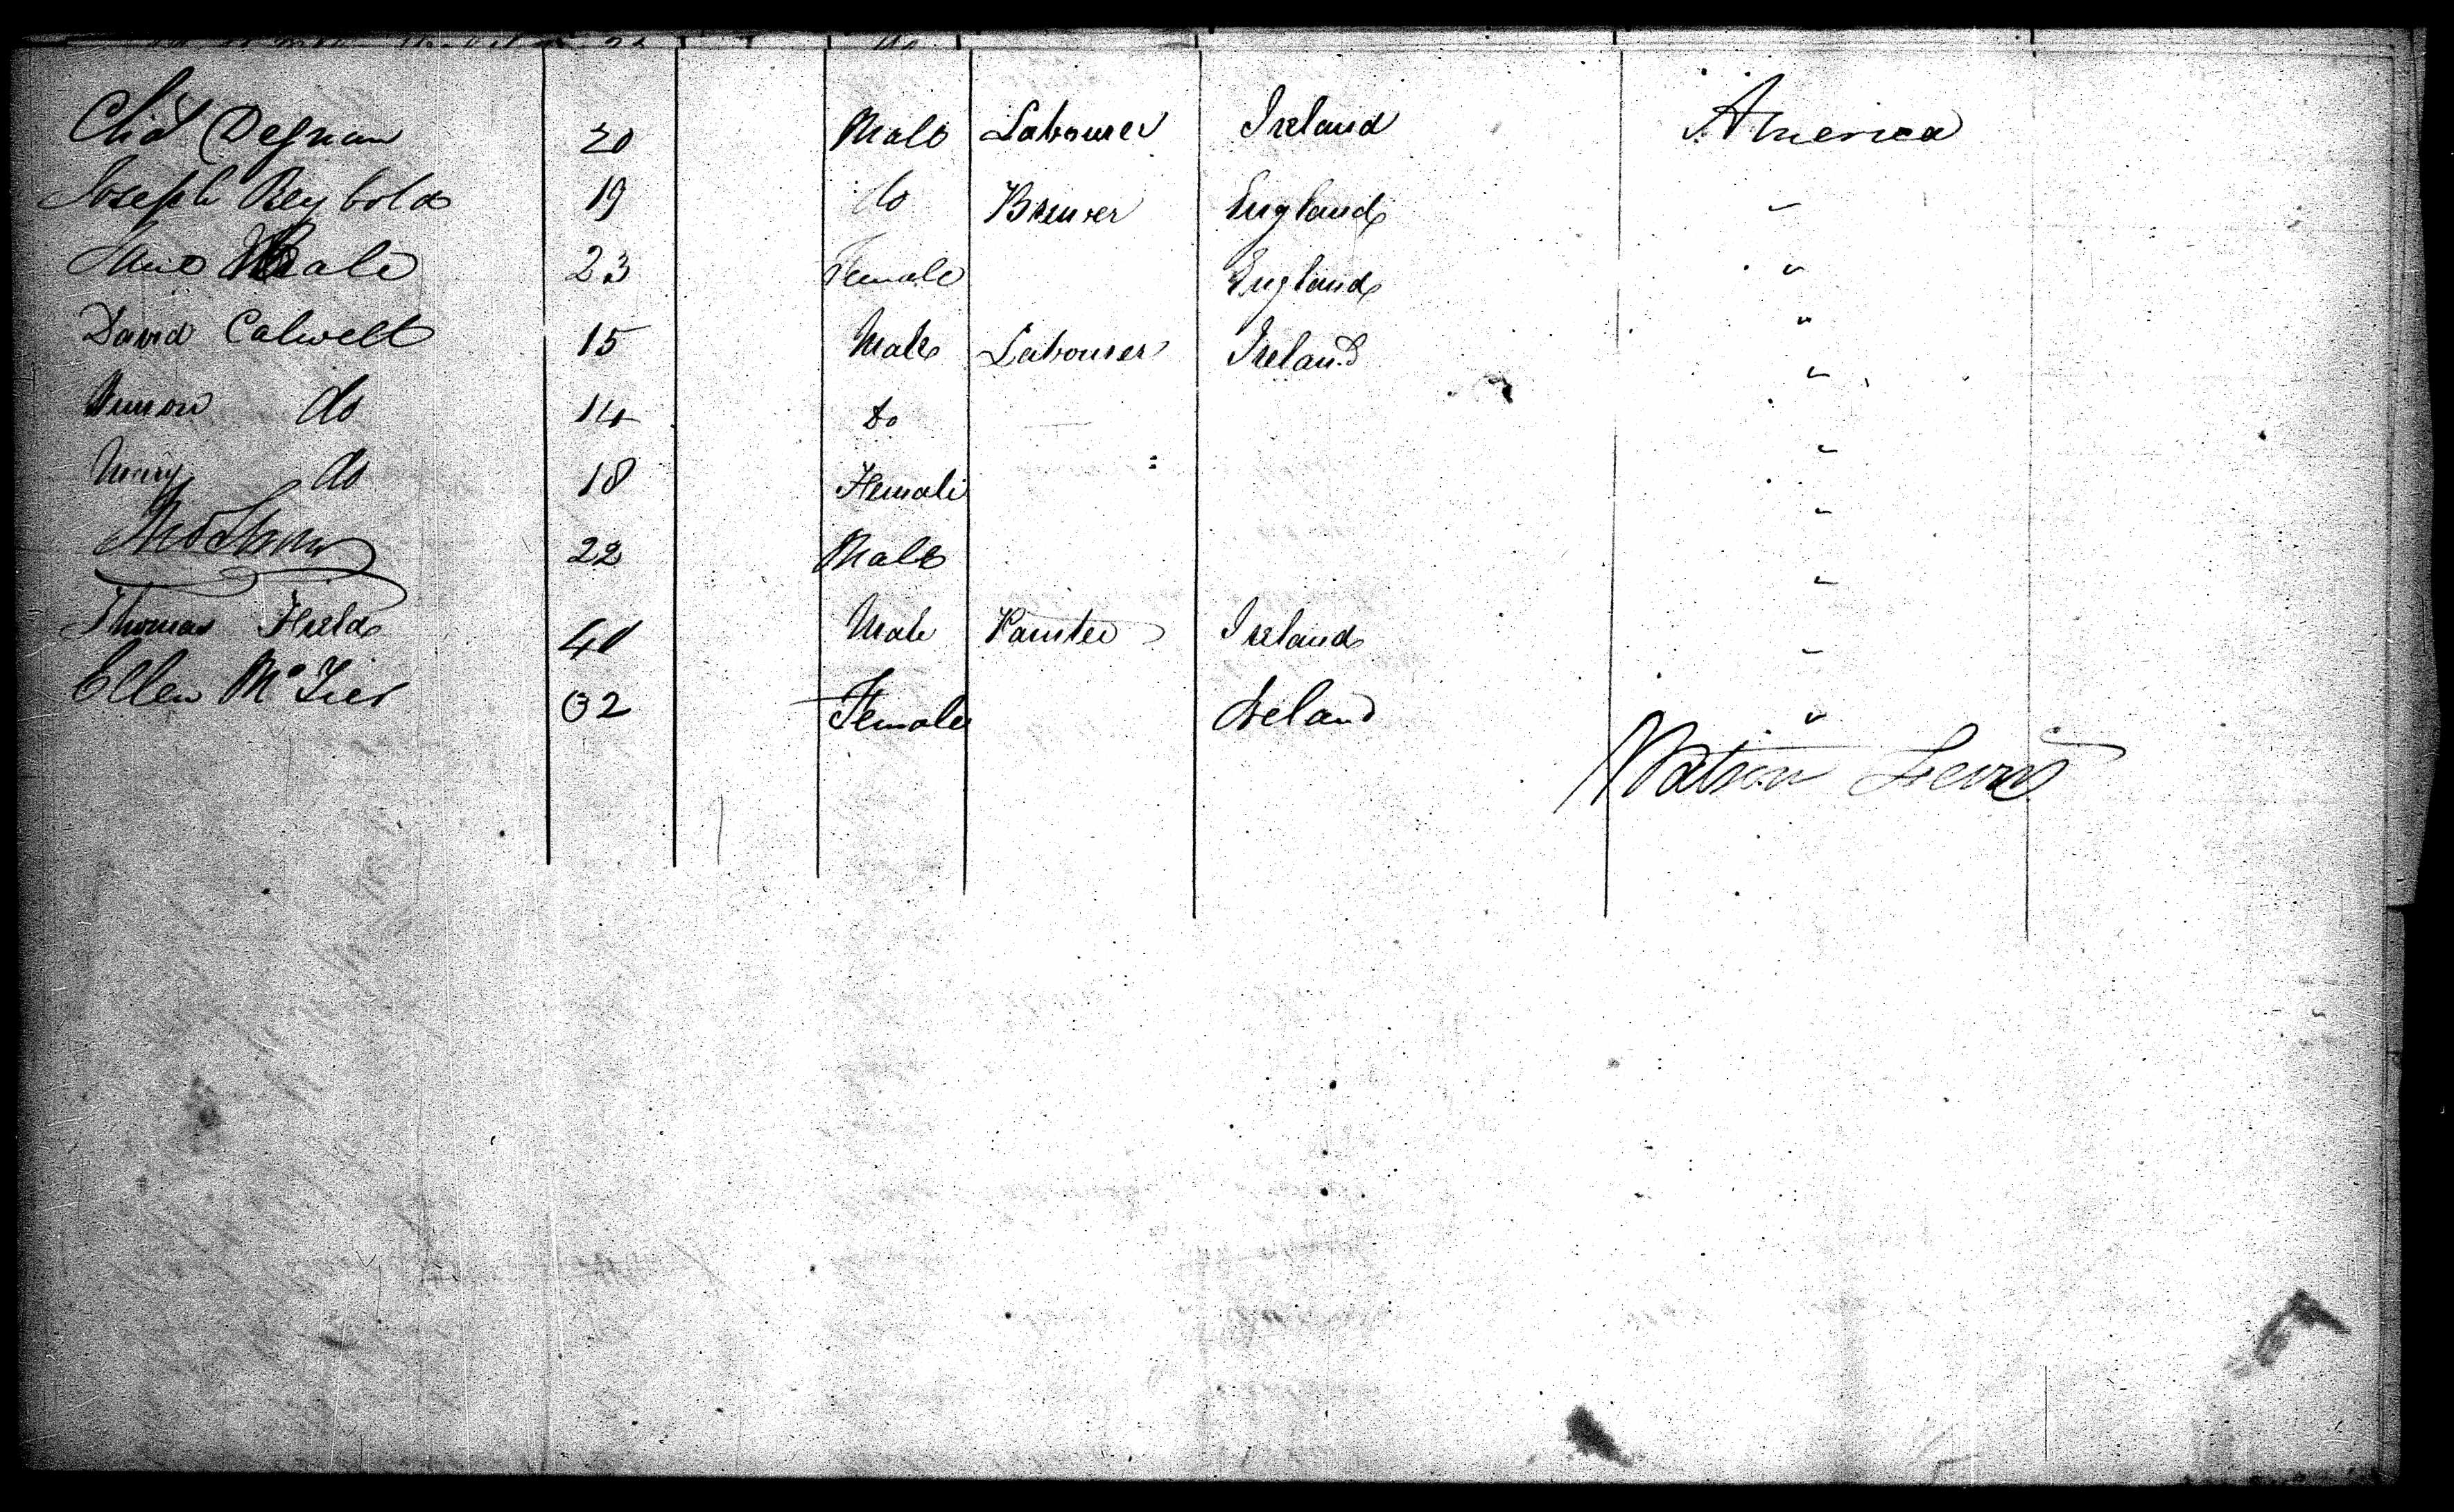 Chas Degnan 20 Male Labourer Ireland America
Joseph Reybold 19 do Brewer England "
Jane Beale 23 Female England "
David Calwell 15 Male Labourer Ireland "
do 14 do "
Mary do 18 Female "
22 Male "
Thomas Field 40 Male Painter Ireland "
Ellen McTier 32 Female Ireland "
Watson